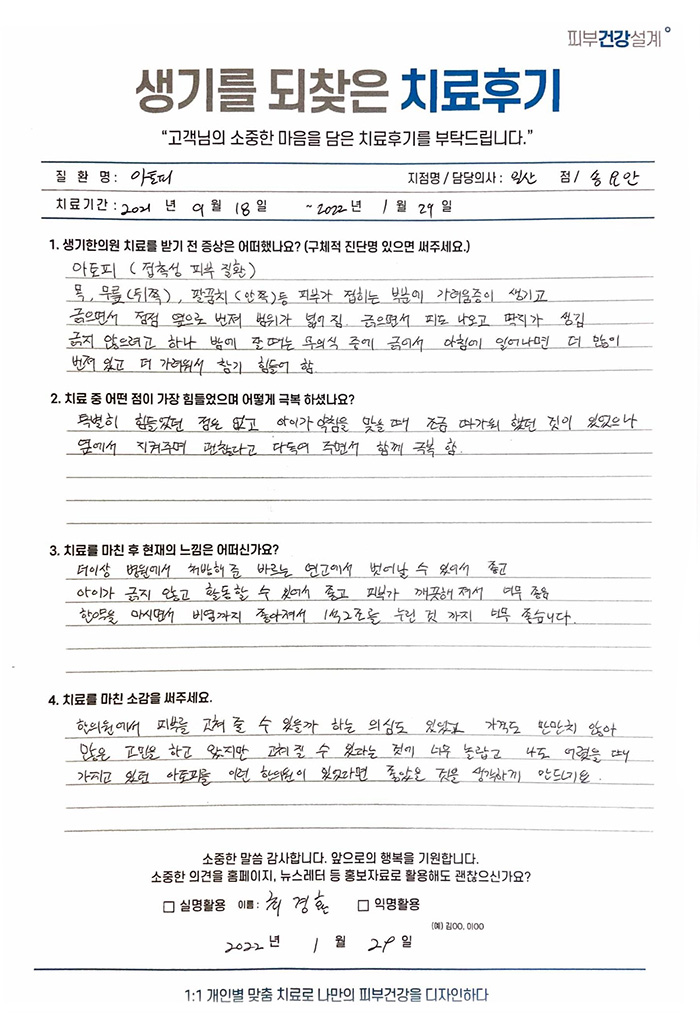 피부건강설계
생기를 되찾은 치료후기
“고객님의 소중한 마음을 담은 치료후기를 부탁드립니다.”
질 환 명 : 아토피 지점명 / 담당의사 : 일산 점 / 송요안
치료기간 : 2021 년 9 월 18 일 ~ 2022 년 1 월 29 일
1. 생기한의원 치료를 받기 전 증상은 어떠했나요? (구체적 진단명 있으면 써주세요.)
아토피 ( 접촉성 피부 질환 )
목, 무릎(뒤쪽), 팔꿈치 (안쪽)등 피부가 접히는 부분에 가려움증이 생기고
긁으면서 점점 옆으로 번져 범위가 넓어짐. 긁으면서 피도 나오고 딱지가 생김
긁지 않으려고 하나 밤에 잘 때는 무의식 중에 긁어서 아침에 일어나면 더 많이
번져 있고 더 가려워서 참기 힘들어 함.
2. 치료 중 어떤 점이 가장 힘들었으며 어떻게 극복 하셨나요?
특별히 힘들었던 점은 없고 아이가 약침을 맞을 때 조금 따가워 했던 것이 있었으나
옆에서 지켜주며 괜찮다고 다독여 주면서 함께 극복 함.
3. 치료를 마친 후 현재의 느낌은 어떠신가요?
더이상 병원에서 처방해 준 바르는 연고에서 벗어날 수 있어서 좋고
아이가 긁지 않고 활동할 수 있어서 좋고 피부가 깨끗해 져서 너무 좋음
한약을 마시면서 비염까지 좋아져서 1석2조를 누린 것 까지 너무 좋습니다.
4. 치료를 마친 소감을 써주세요.
한의원에서 피부를 고쳐 줄 수 있을까 하는 의심도 있었고 가격도 만만치 않아
많은 고민을 하고 왔지만 고쳐 질 수 있다는 것에 너무 놀랍고 나도 어렸을 때
가지고 있던 아토피를 이런 한의원이 있었다면 좋았을 것을 생각하게 만드네요.
소중한 말씀 감사합니다. 앞으로의 행복을 기원합니다.
소중한 의견을 홈페이지, 뉴스레터 등 홍보자료로 활용해도 괜찮으신가요?
□ 실명활용 이름 : 최경환 □ 익명활용
(예) 김OO, 이OO
2022 년 1 월 29 일
1:1 개인별 맞춤 치료로 나만의 피부건강을 디자인하다